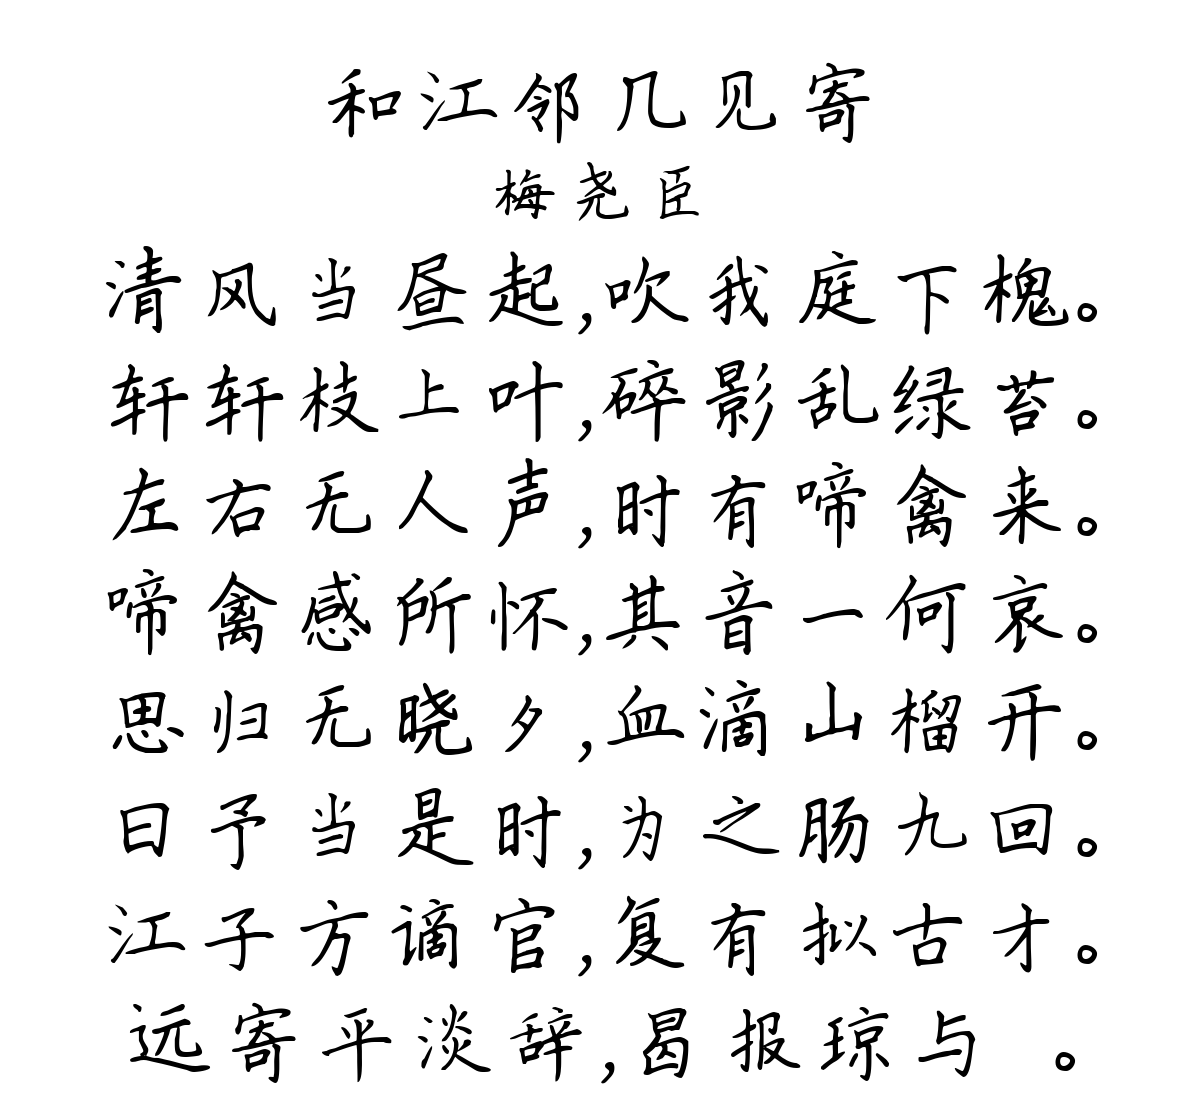 和江邻几见寄
梅尧臣
清风当昼起,吹我庭下槐。
轩轩枝上叶,碎影乱绿苔。
左右无人声,时有啼禽来。
啼禽感所怀,其音一何哀。
思归无晓夕,血滴山榴开。
曰予当是时,为之肠九回。
江子方谪官,复有拟古才。
远寄平淡辞,曷报琼与 。